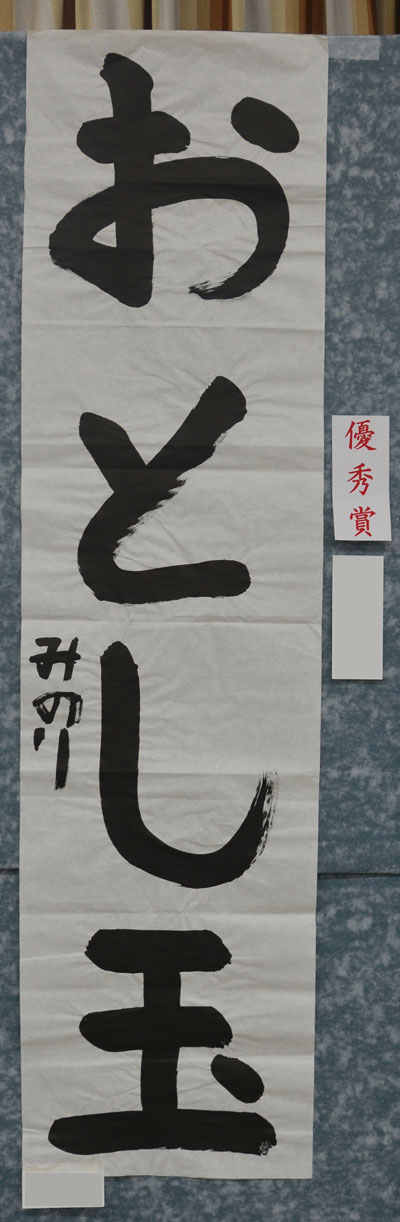 優秀賞
おとし玉
みのり